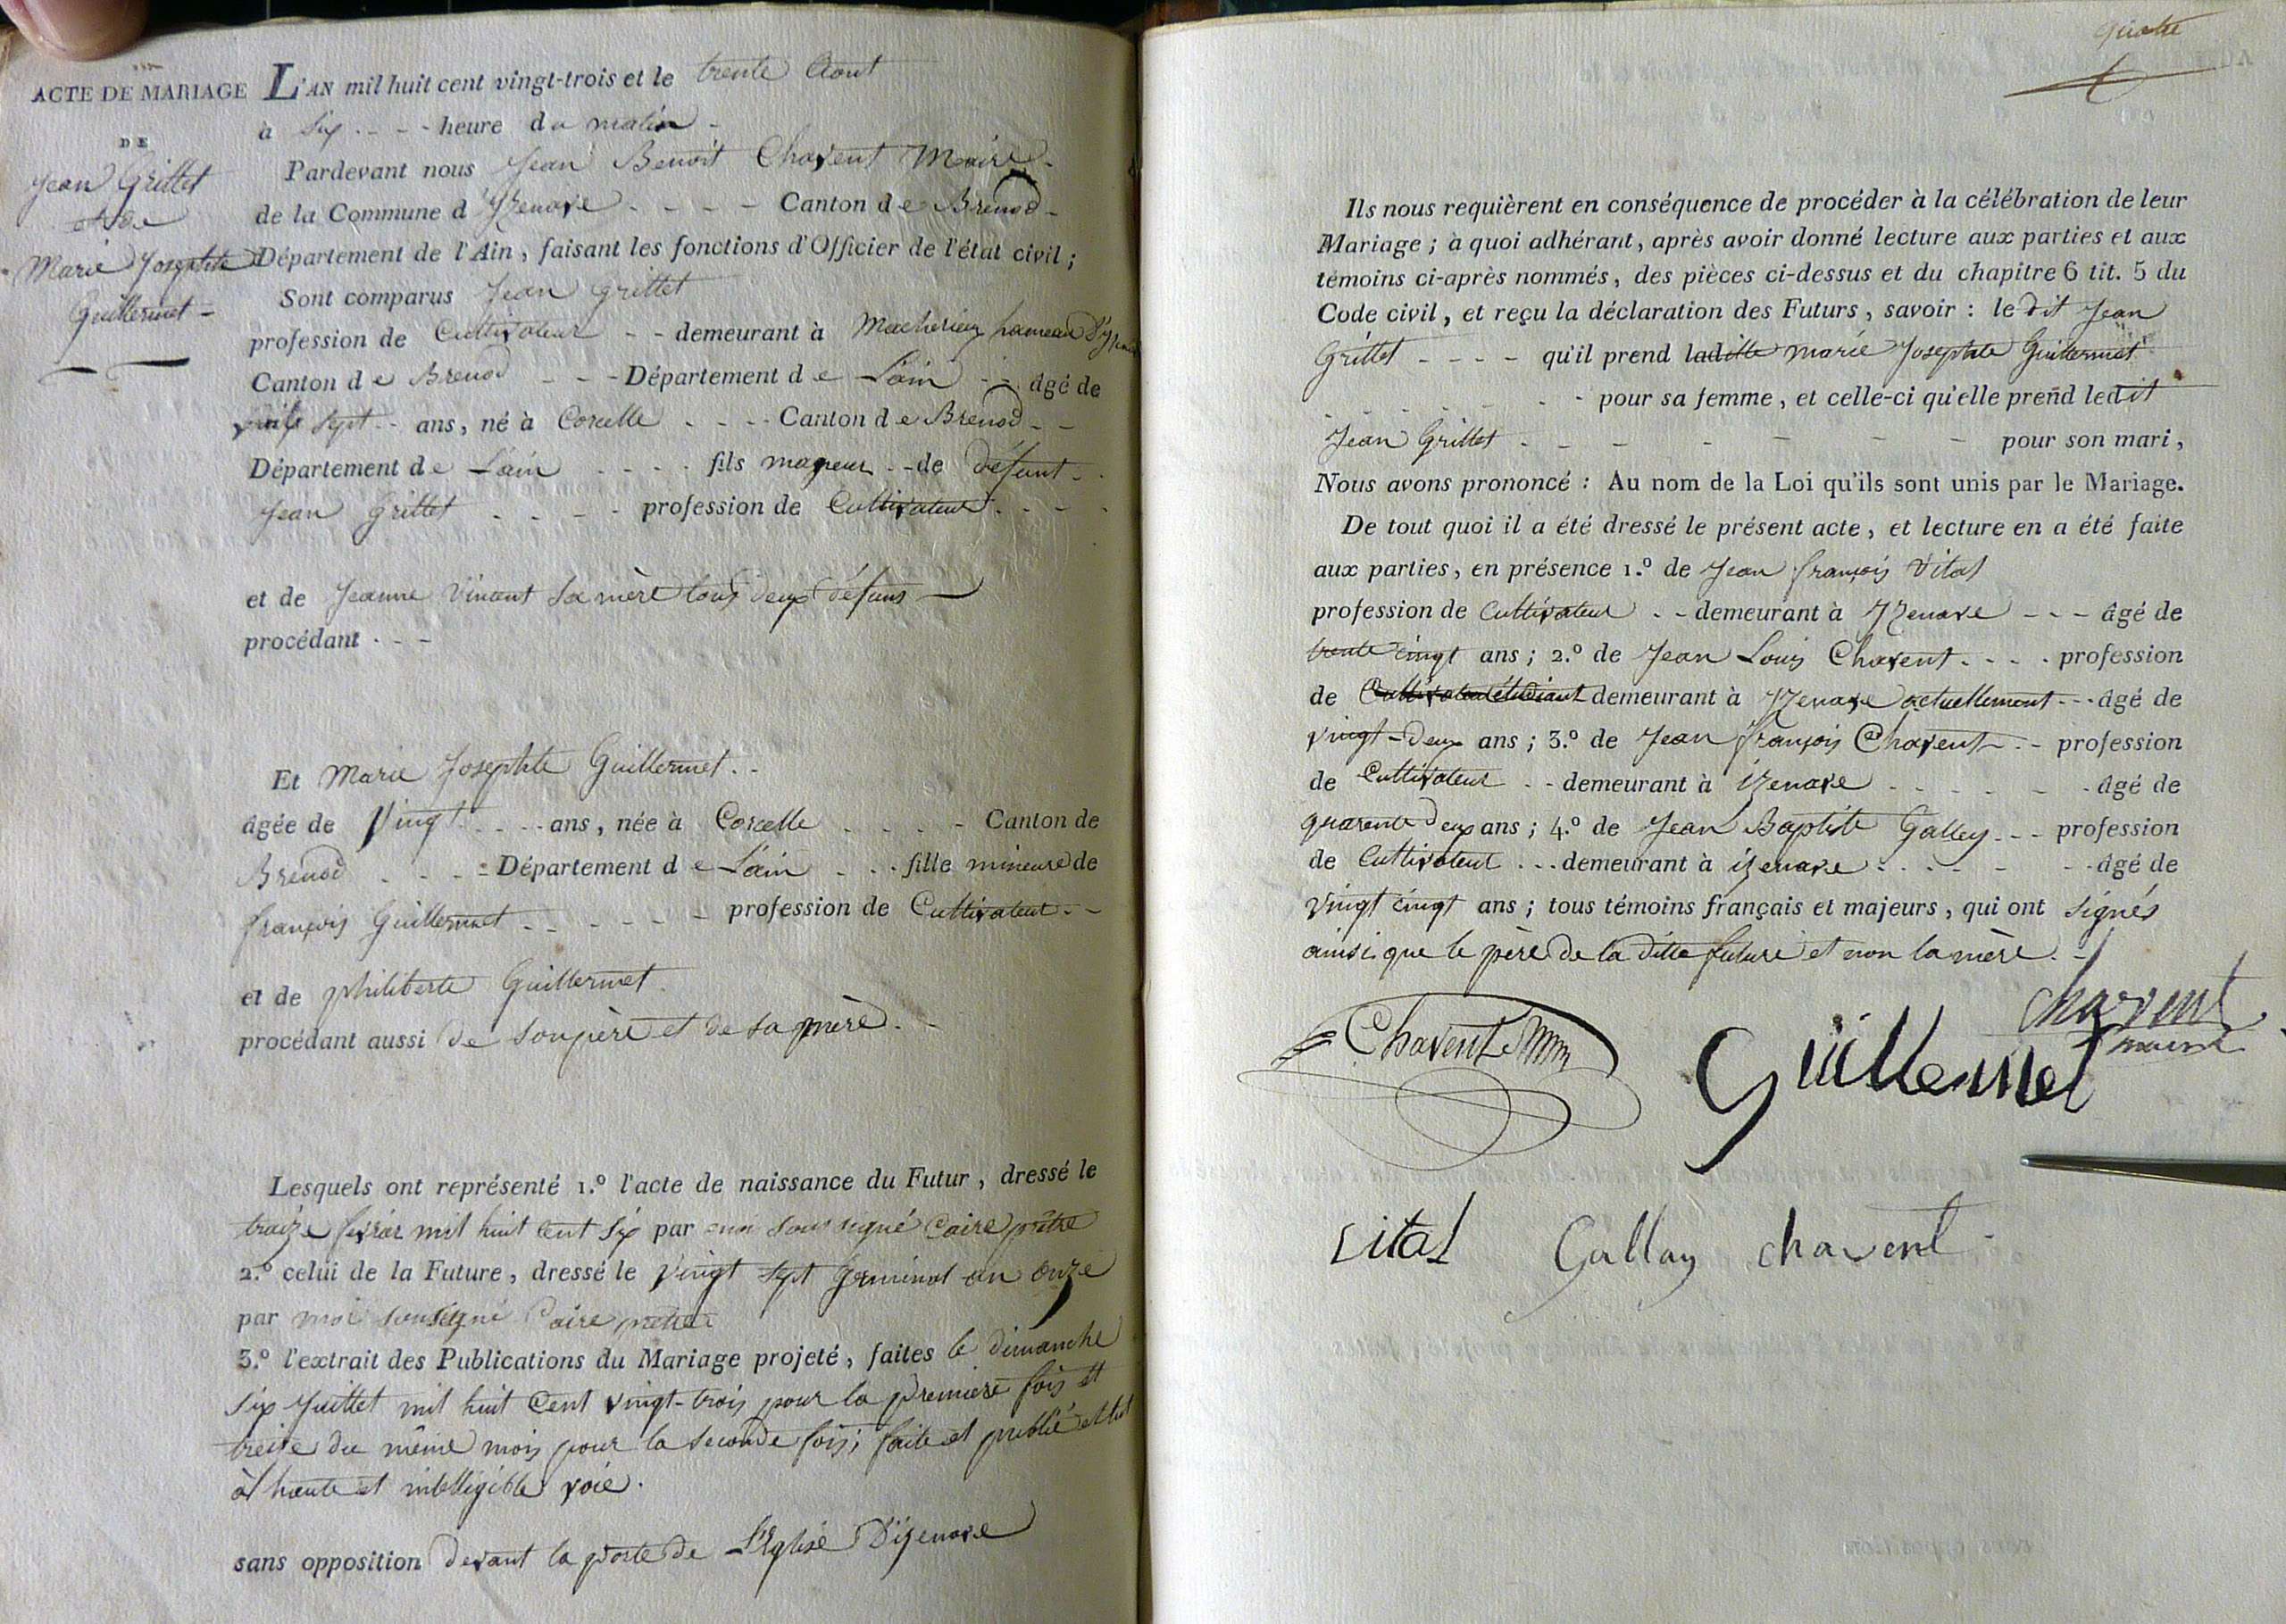 ACTE DE MARIAGE
DE
Jean Grillet
et de
Marie Josephte
Guillermet
L'AN mil huit cent vingt-trois et le trente Aout
à six heure du matin
Pardevant nous Jean Benoit Chavent Maire
de la Commune d'Izenave Canton de Brenod
Département de l'Ain, faisant les fonctions d'Officier de l'état civil ;
Sont comparus Jean Grillet
profession de Cultivateur demeurant à hameau
Canton de Brenod Département de L'ain âgé de
sept ans, né à Corcelle Canton de Brenod
Département de L'ain fils majeur de défunt
Jean Grillet profession de Cultivateur
et de Jeanne Vinant sa mère tous deux défuns
procédant
Et Marie Josephte Guillermet
âgée de Vingt ans, née à Corcelle Canton de
Brenod Département de L'ain fille mineure de
françois Guillermet profession de Cultivateur
et de philiberte Guillermet
procédant aussi de son père et de sa mère
Lesquels ont représenté 1.º l'acte de naissance du Futur, dressé le
mil huit cent six par moi sous signé Caire prêtre
2.º celui de la Future, dressé le vingt sept germinal an onze
par moi soussigné Caire prêtre
3.º l'extrait des Publications du Mariage projeté, faites le dimanche
six Juillet mil huit Cent vingt-trois pour la première fois et
treize du même mois pour la seconde fois ; faite et publié et lut
à haute et intelligible voie.
sans opposition devant la porte de L'Eglise D'izenave
quatre
Ils nous requièrent en conséquence de procéder à la célébration de leur
Mariage ; à quoi adhérant, après avoir donné lecture aux parties et aux
témoins ci-après nommés, des pièces ci-dessus et du chapitre 6 tit. 5 du
Code civil, et reçu la déclaration des Futurs, savoir : le dit Jean
Grillet qu'il prend ladille marie Josephte Guillermet
pour sa femme, et celle-ci qu'elle prend ledit
Jean Grillet pour son mari,
Nous avons prononcé : Au nom de la Loi qu'ils sont unis par le Mariage.
De tout quoi il a été dressé le présent acte, et lecture en a été faite
aux parties, en présence 1.º de Jean françois Vital
profession de Cultivateur demeurant à Izenave âgé de
trente cinqt ans ; 2.º de Jean Louis Chavent profession
de Cultivateur étudiant demeurant à Izenave actuellement âgé de
vingt-deux ans ; 3.º de Jean françois Chavent profession
de Cultivateur demeurant à izenave âgé de
quarente deux ans ; 4.º de Jean Baptiste Galley profession
de Cultivateur demeurant à izenave âgé de
vingt cinqt ans ; tous témoins français et majeurs, qui ont signés
ainsi que le père de la ditte future et non la mère.
Chavent
Chavent maire
Guillermet
vital Gallay chavent